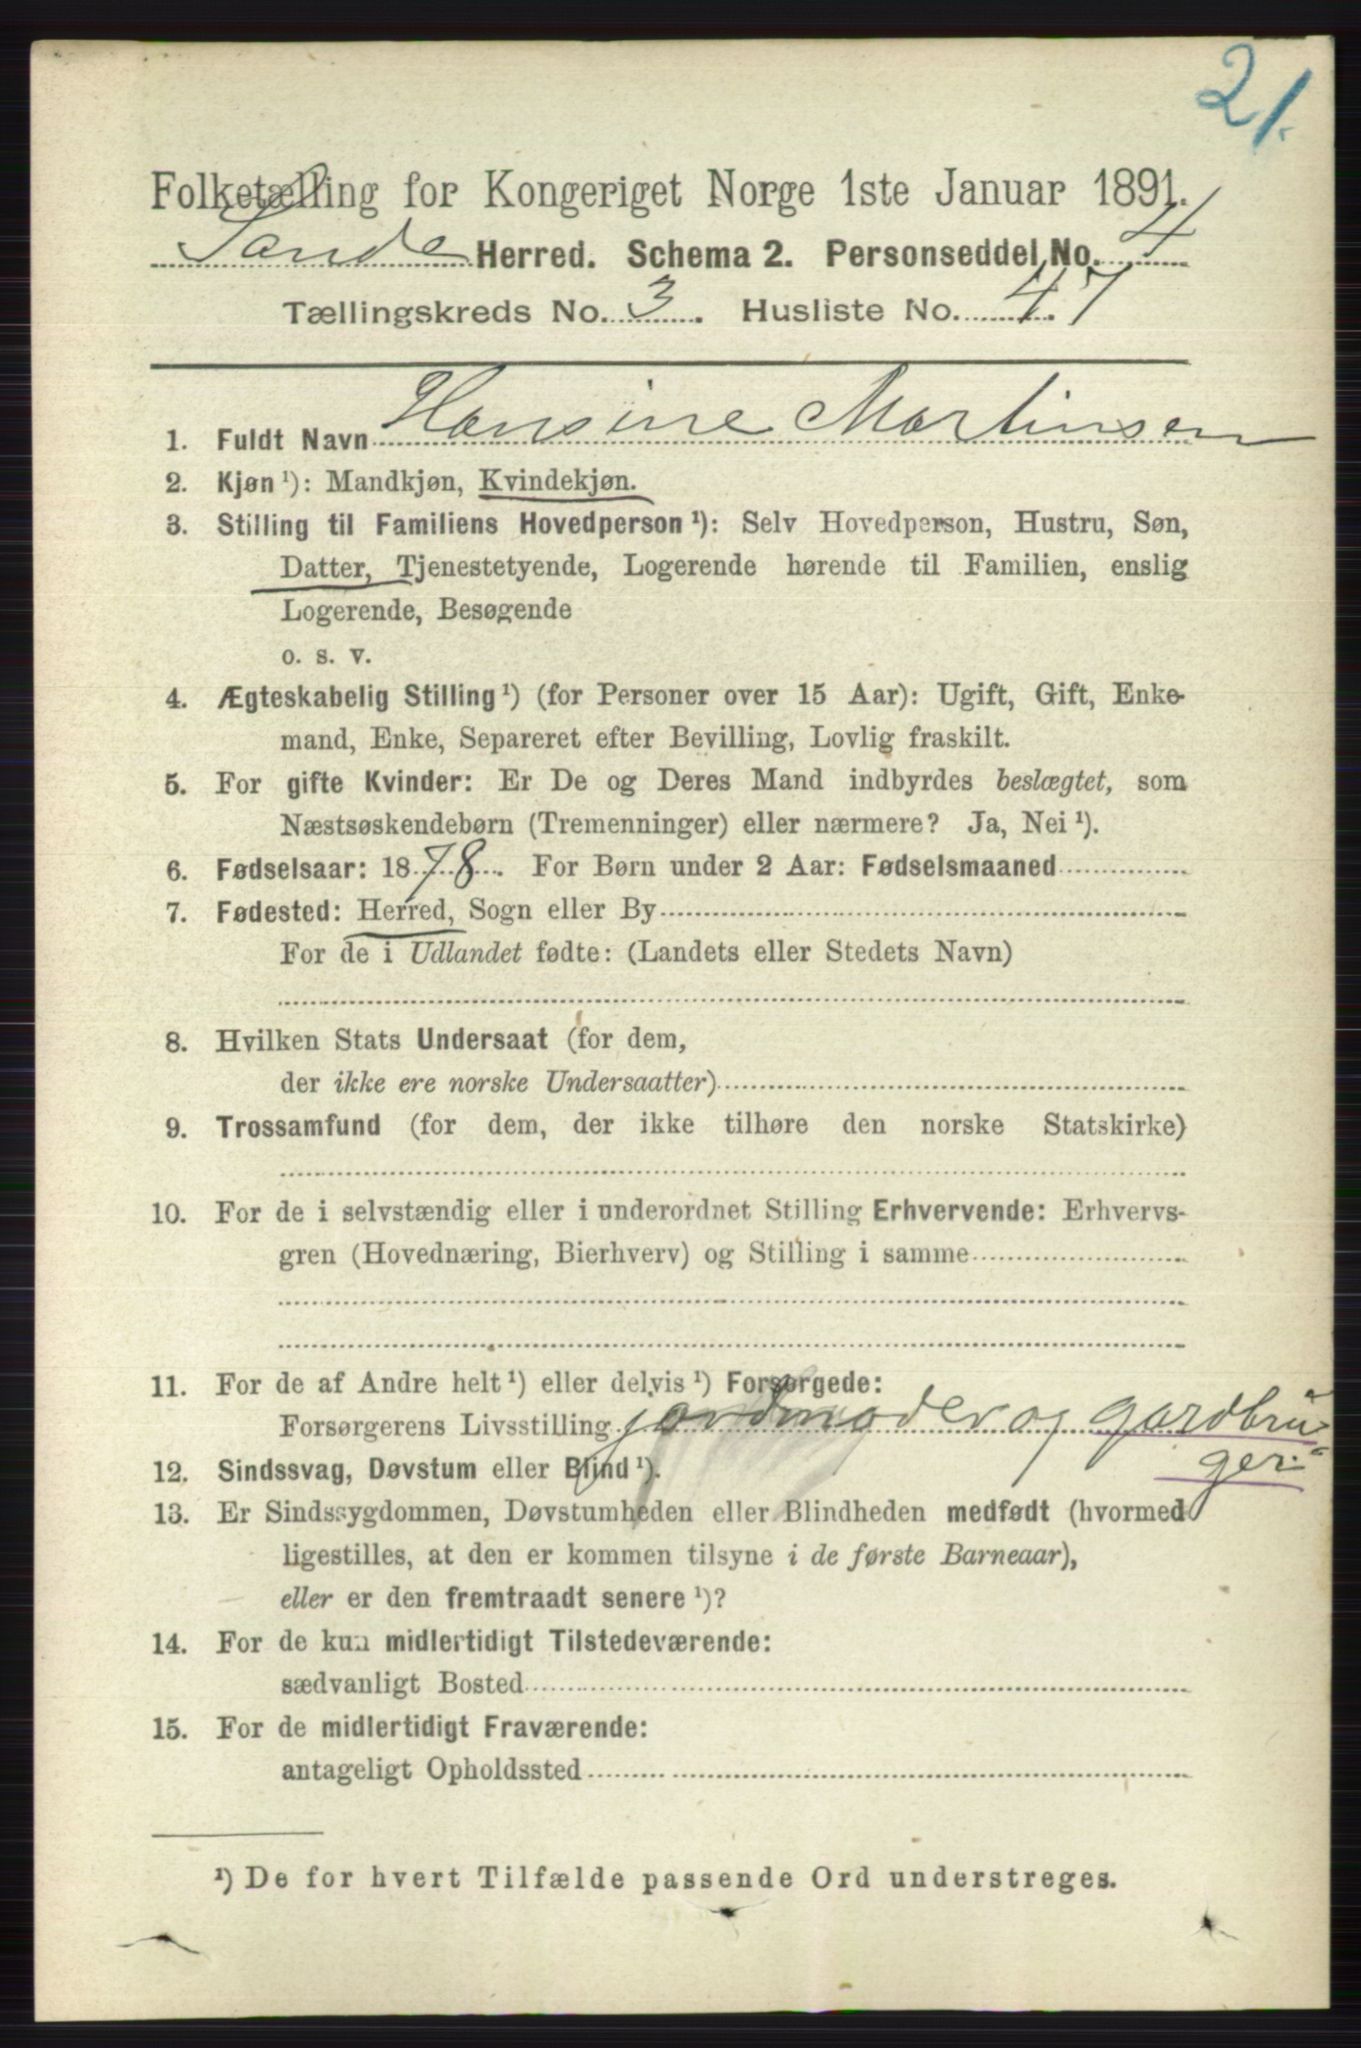 21.
Folketælling for Kongeriget Norge 1ste Januar 1891.
Sande Herred. Schema 2. Personseddel No. 4
Tællingskreds No. 3. Husliste No. 47
1. Fuldt Navn Hansine Martinsen
2. Kjøn ¹): Mandkjøn, Kvindekjøn.
3. Stilling til Familiens Hovedperson ¹): Selv Hovedperson, Hustru, Søn,
Datter, Tjenestetyende, Logerende hørende til Familien, enslig
Logerende, Besøgende
o. s. v.
4. Ægteskabelig Stilling ¹) (for Personer over 15 Aar): Ugift, Gift, Enke-
mand, Enke, Separeret efter Bevilling, Lovlig fraskilt.
5. For gifte Kvinder: Er De og Deres Mand indbyrdes beslægtet, som
Næstsøskendebørn (Tremenninger) eller nærmere? Ja, Nei ¹).
6. Fødselsaar: 1878. For Børn under 2 Aar: Fødselsmaaned
7. Fødested: Herred, Sogn eller By
For de i Udlandet fødte: (Landets eller Stedets Navn)
8. Hvilken Stats Undersaat (for dem,
der ikke ere norske Undersaatter)
9. Trossamfund (for dem, der ikke tilhøre den norske Statskirke)
10. For de i selvstændig eller i underordnet Stilling Erhvervende: Erhvervs-
gren (Hovednæring, Bierhverv) og Stilling i samme
11. For de af Andre helt ¹) eller delvis ¹) Forsørgede:
Forsørgerens Livsstilling jordmoder og gardbru-
ger.
12. Sindssvag, Døvstum eller Blind ¹).
13. Er Sindssygdommen, Døvstumheden eller Blindheden medfødt (hvormed
ligestilles, at den er kommen tilsyne i de første Barneaar),
eller er den fremtraadt senere ¹)?
14. For de kun midlertidigt Tilstedeværende:
sædvanligt Bosted
15. For de midlertidigt Fraværende:
antageligt Opholdssted
¹) De for hvert Tilfælde passende Ord understreges.